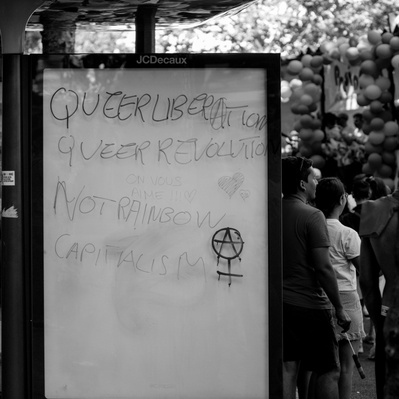 JCDecaux
QUEER LIBERATION
QUEER REVOLUTION
ON VOUS
AIME
NOT RAINBOW
CAPITALISM